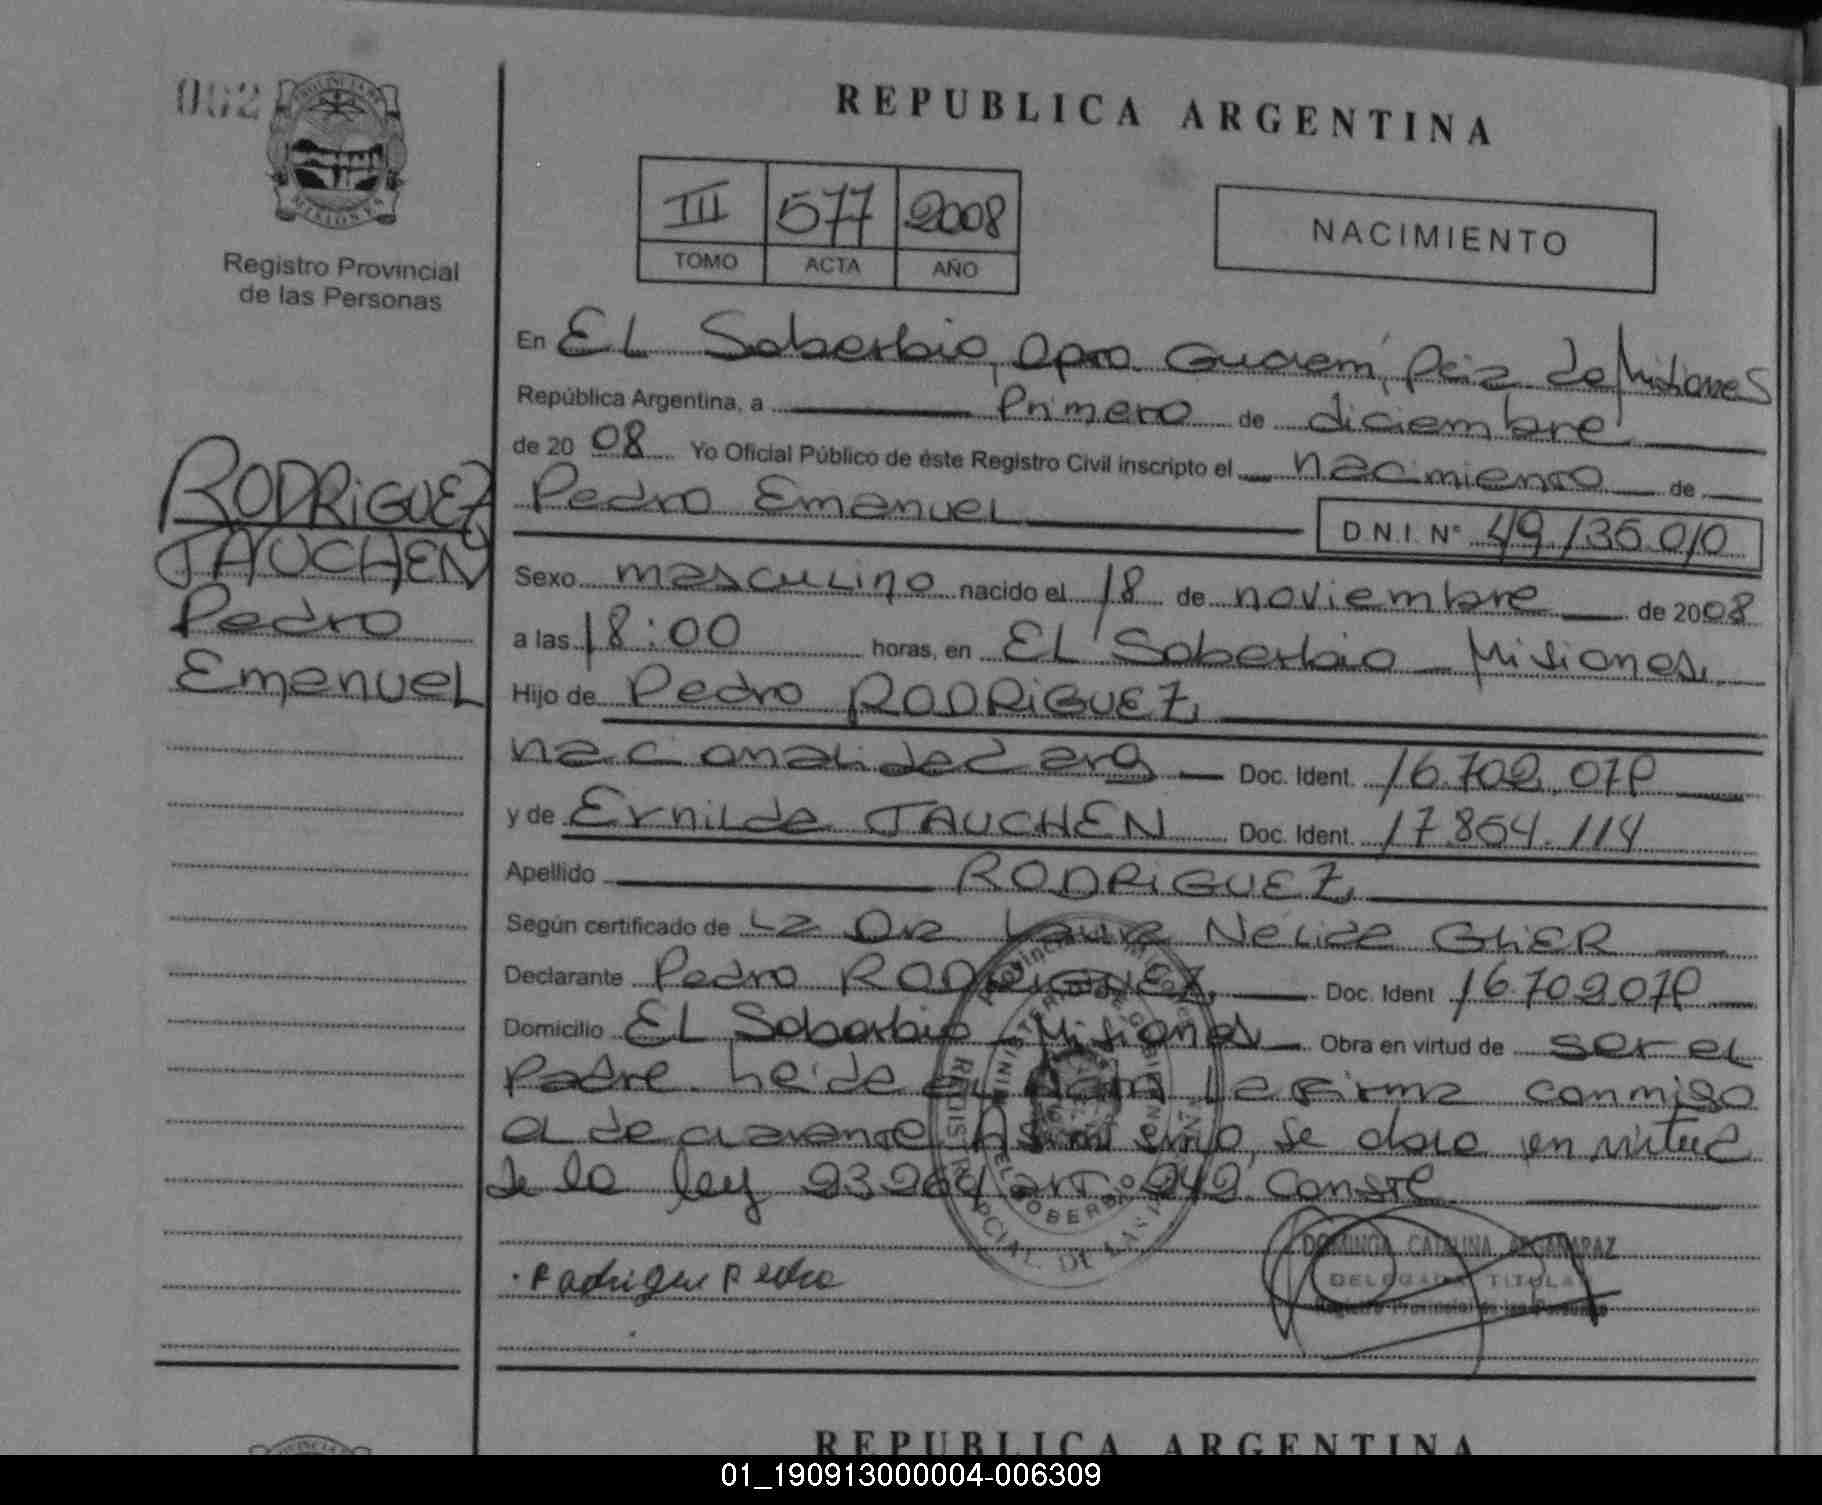 062
PROVINCIA DE
MISIONES
Registro Provincial
de las Personas
REPUBLICA ARGENTINA
III 577 2008
TOMO ACTA AÑO
NACIMIENTO
En EL Soberbio, Dpto. Guaraní, Pcia de Misiones
República Argentina, a Primero de diciembre
de 2008 Yo Oficial Público de éste Registro Civil inscripto el nacimiento de
Pedro Emanuel D.N.I. N° 49.135.010
RODRIGUEZ
TAUCHEN
Pedro
Emanuel
Sexo masculino nacido el 18 de noviembre de 2008
a las 18:00 horas, en EL Soberbio - Misiones.
Hijo de Pedro RODRIGUEZ,
nacionalidad arg Doc. Ident. 16.709.078
y de Ernilda TAUCHEN Doc. Ident. 17.854.114
Apellido RODRIGUEZ,
Según certificado de La Dra Laura Nélida GLIER
Declarante Pedro RODRIGUEZ, Doc. Ident 16.709.078
Domicilio EL Soberbio - Misiones Obra en virtud de ser el
Padre. Leída el acta La firma conmigo
el declarante. Asimismo, se deja en virtud
de la ley 23.264 art. 242. Conste
Rodriguez Pedro
DOMINGA CATALINA ARGAÑARAZ
DELEGADA TITULAR
Registro Provincial de las Personas
REPUBLICA ARGENTINA
01_190913000004-006309